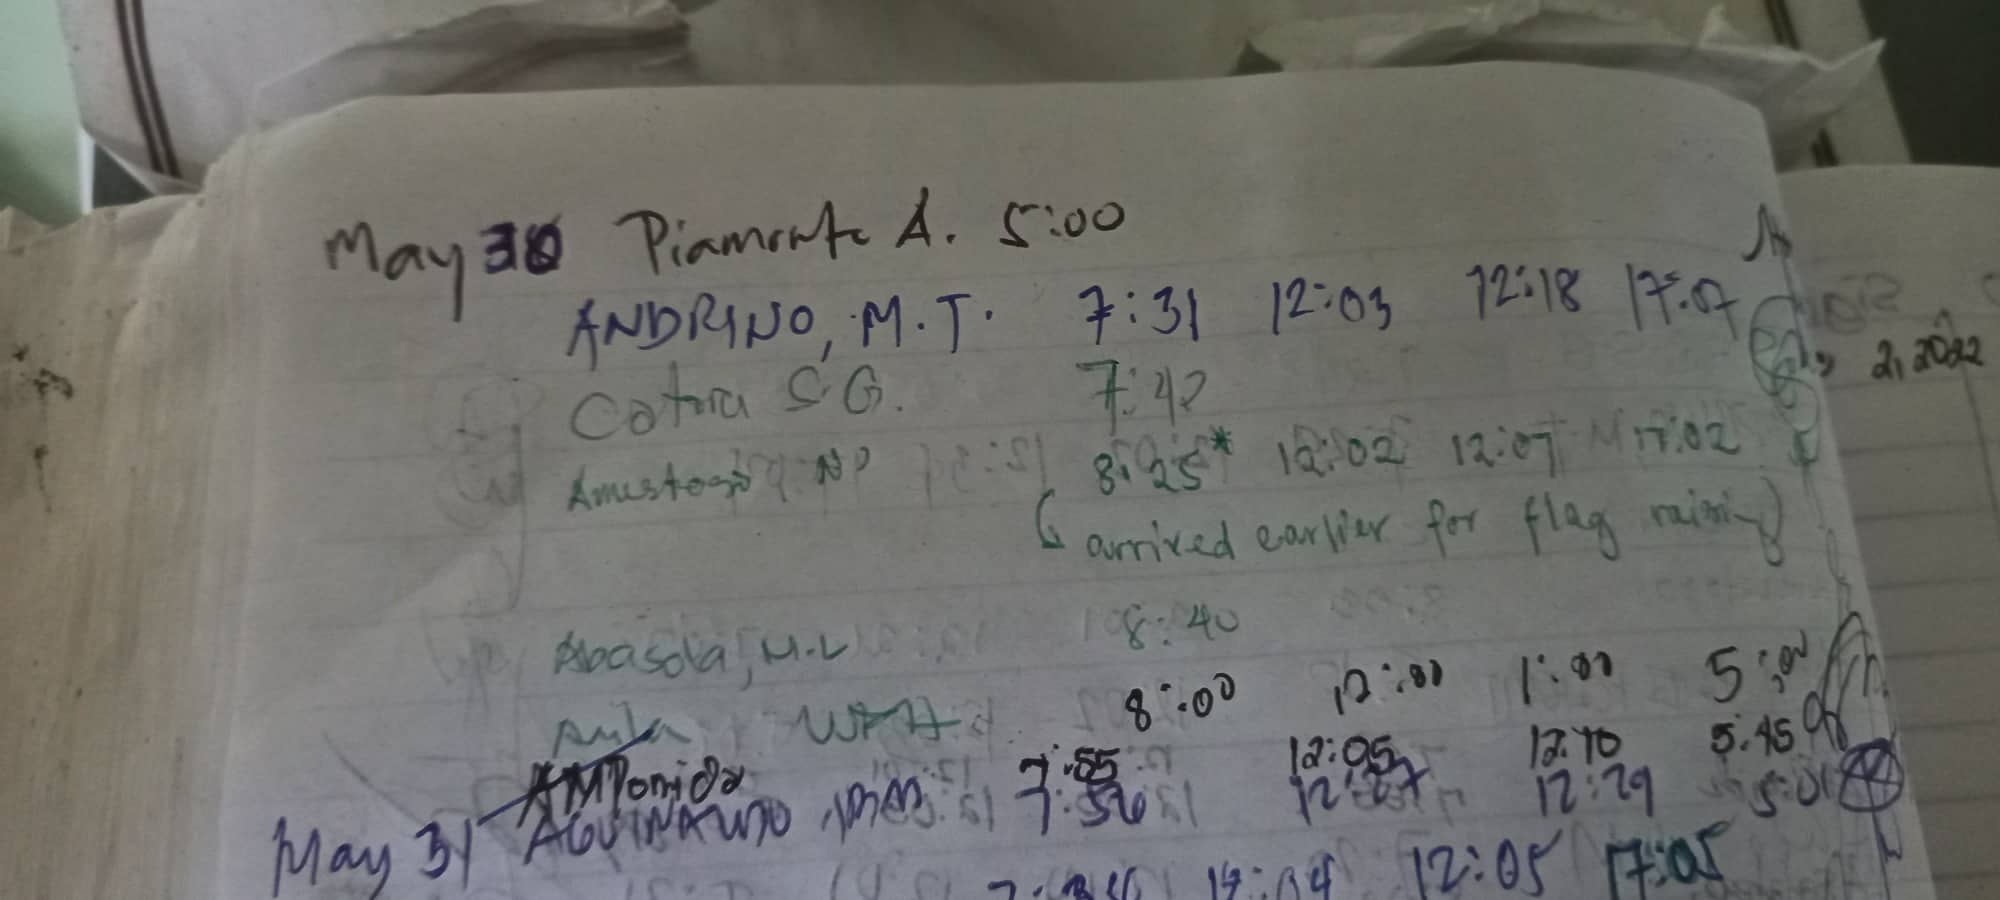 May 30 Piamonte A. 5:00
ANDRINO, M.T. 7:31 12:03 12:18 17:07
Catura S.G. 7:42
2, 2022
NP 8:25* 12:02 12:07 17:02
(arrived earlier for flag raising)
Abasola, M.L 8:40
WFH 8:00 12:00 1:00 5:00
7:55 12:05 12:10 5:45
May 31 AGUINALDO 12:29 5:01
12:05 17:05